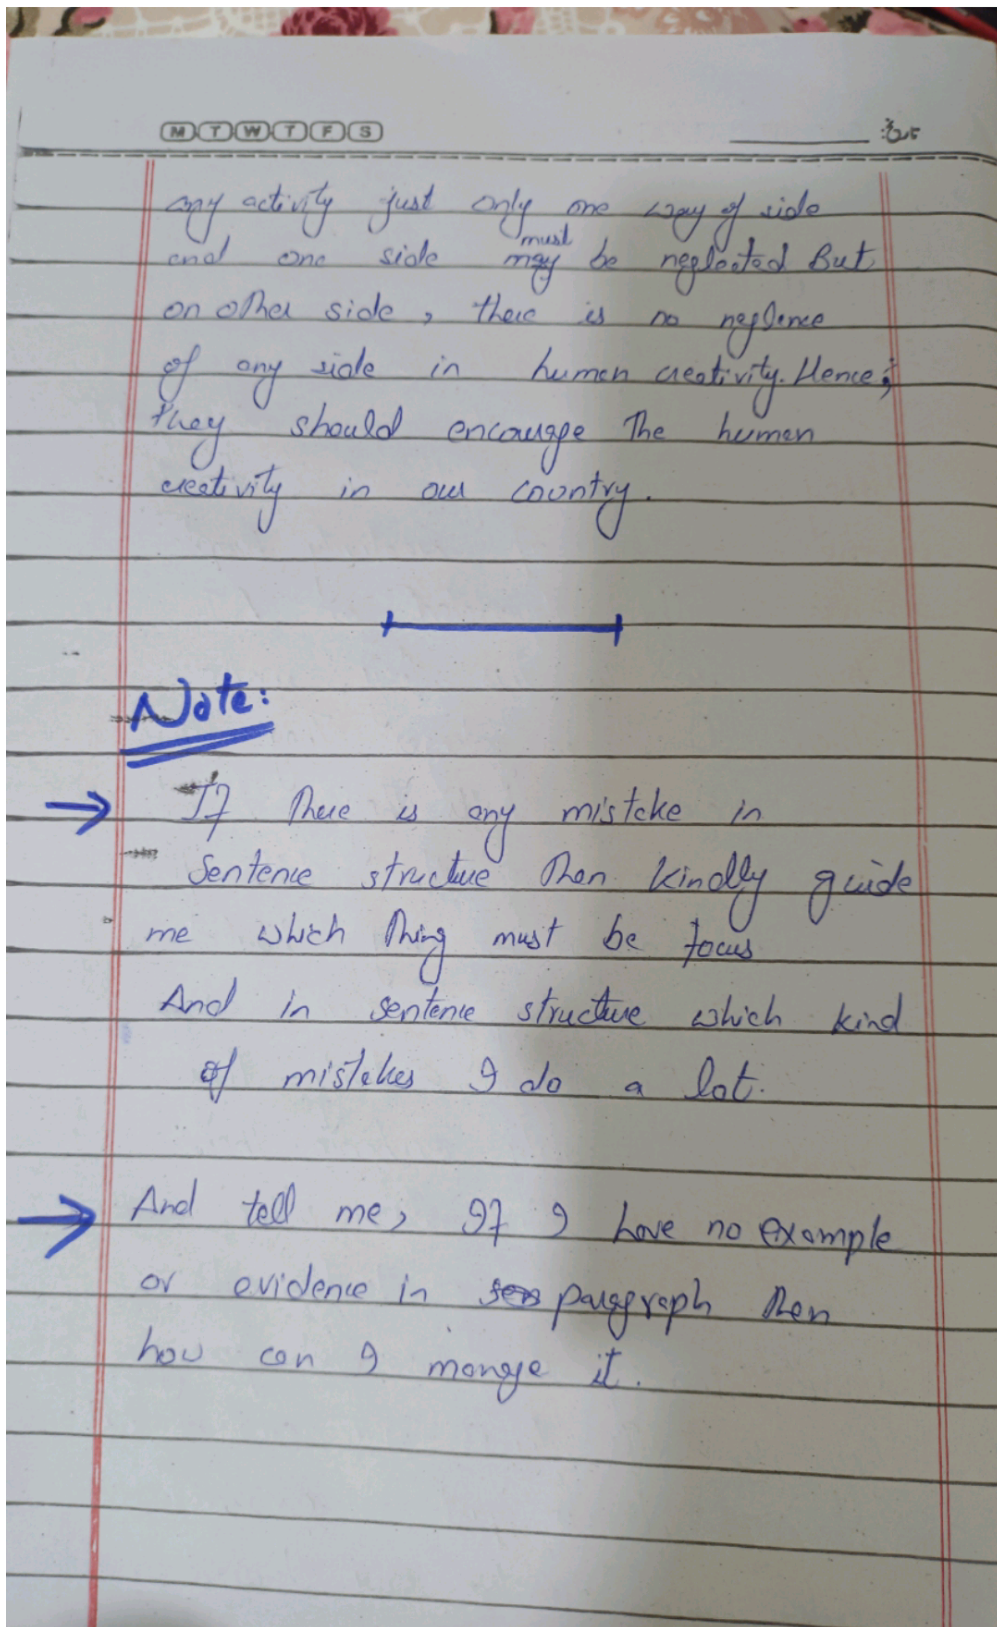 M T W T F S
any activity just only one way of side
and one side must may be neglected But
on other side, there is no neglence
of any side in human creativity. Hence;
they should encourage the human
creativity in our country.
Note:
→ If there is any mistake in
Sentence structure then kindly guide
me which thing must be focus
And in sentence structure which kind
of mistakes I do a lot.
→ And tell me, If I have no example
or evidence in paragraph then
how can I mange it.